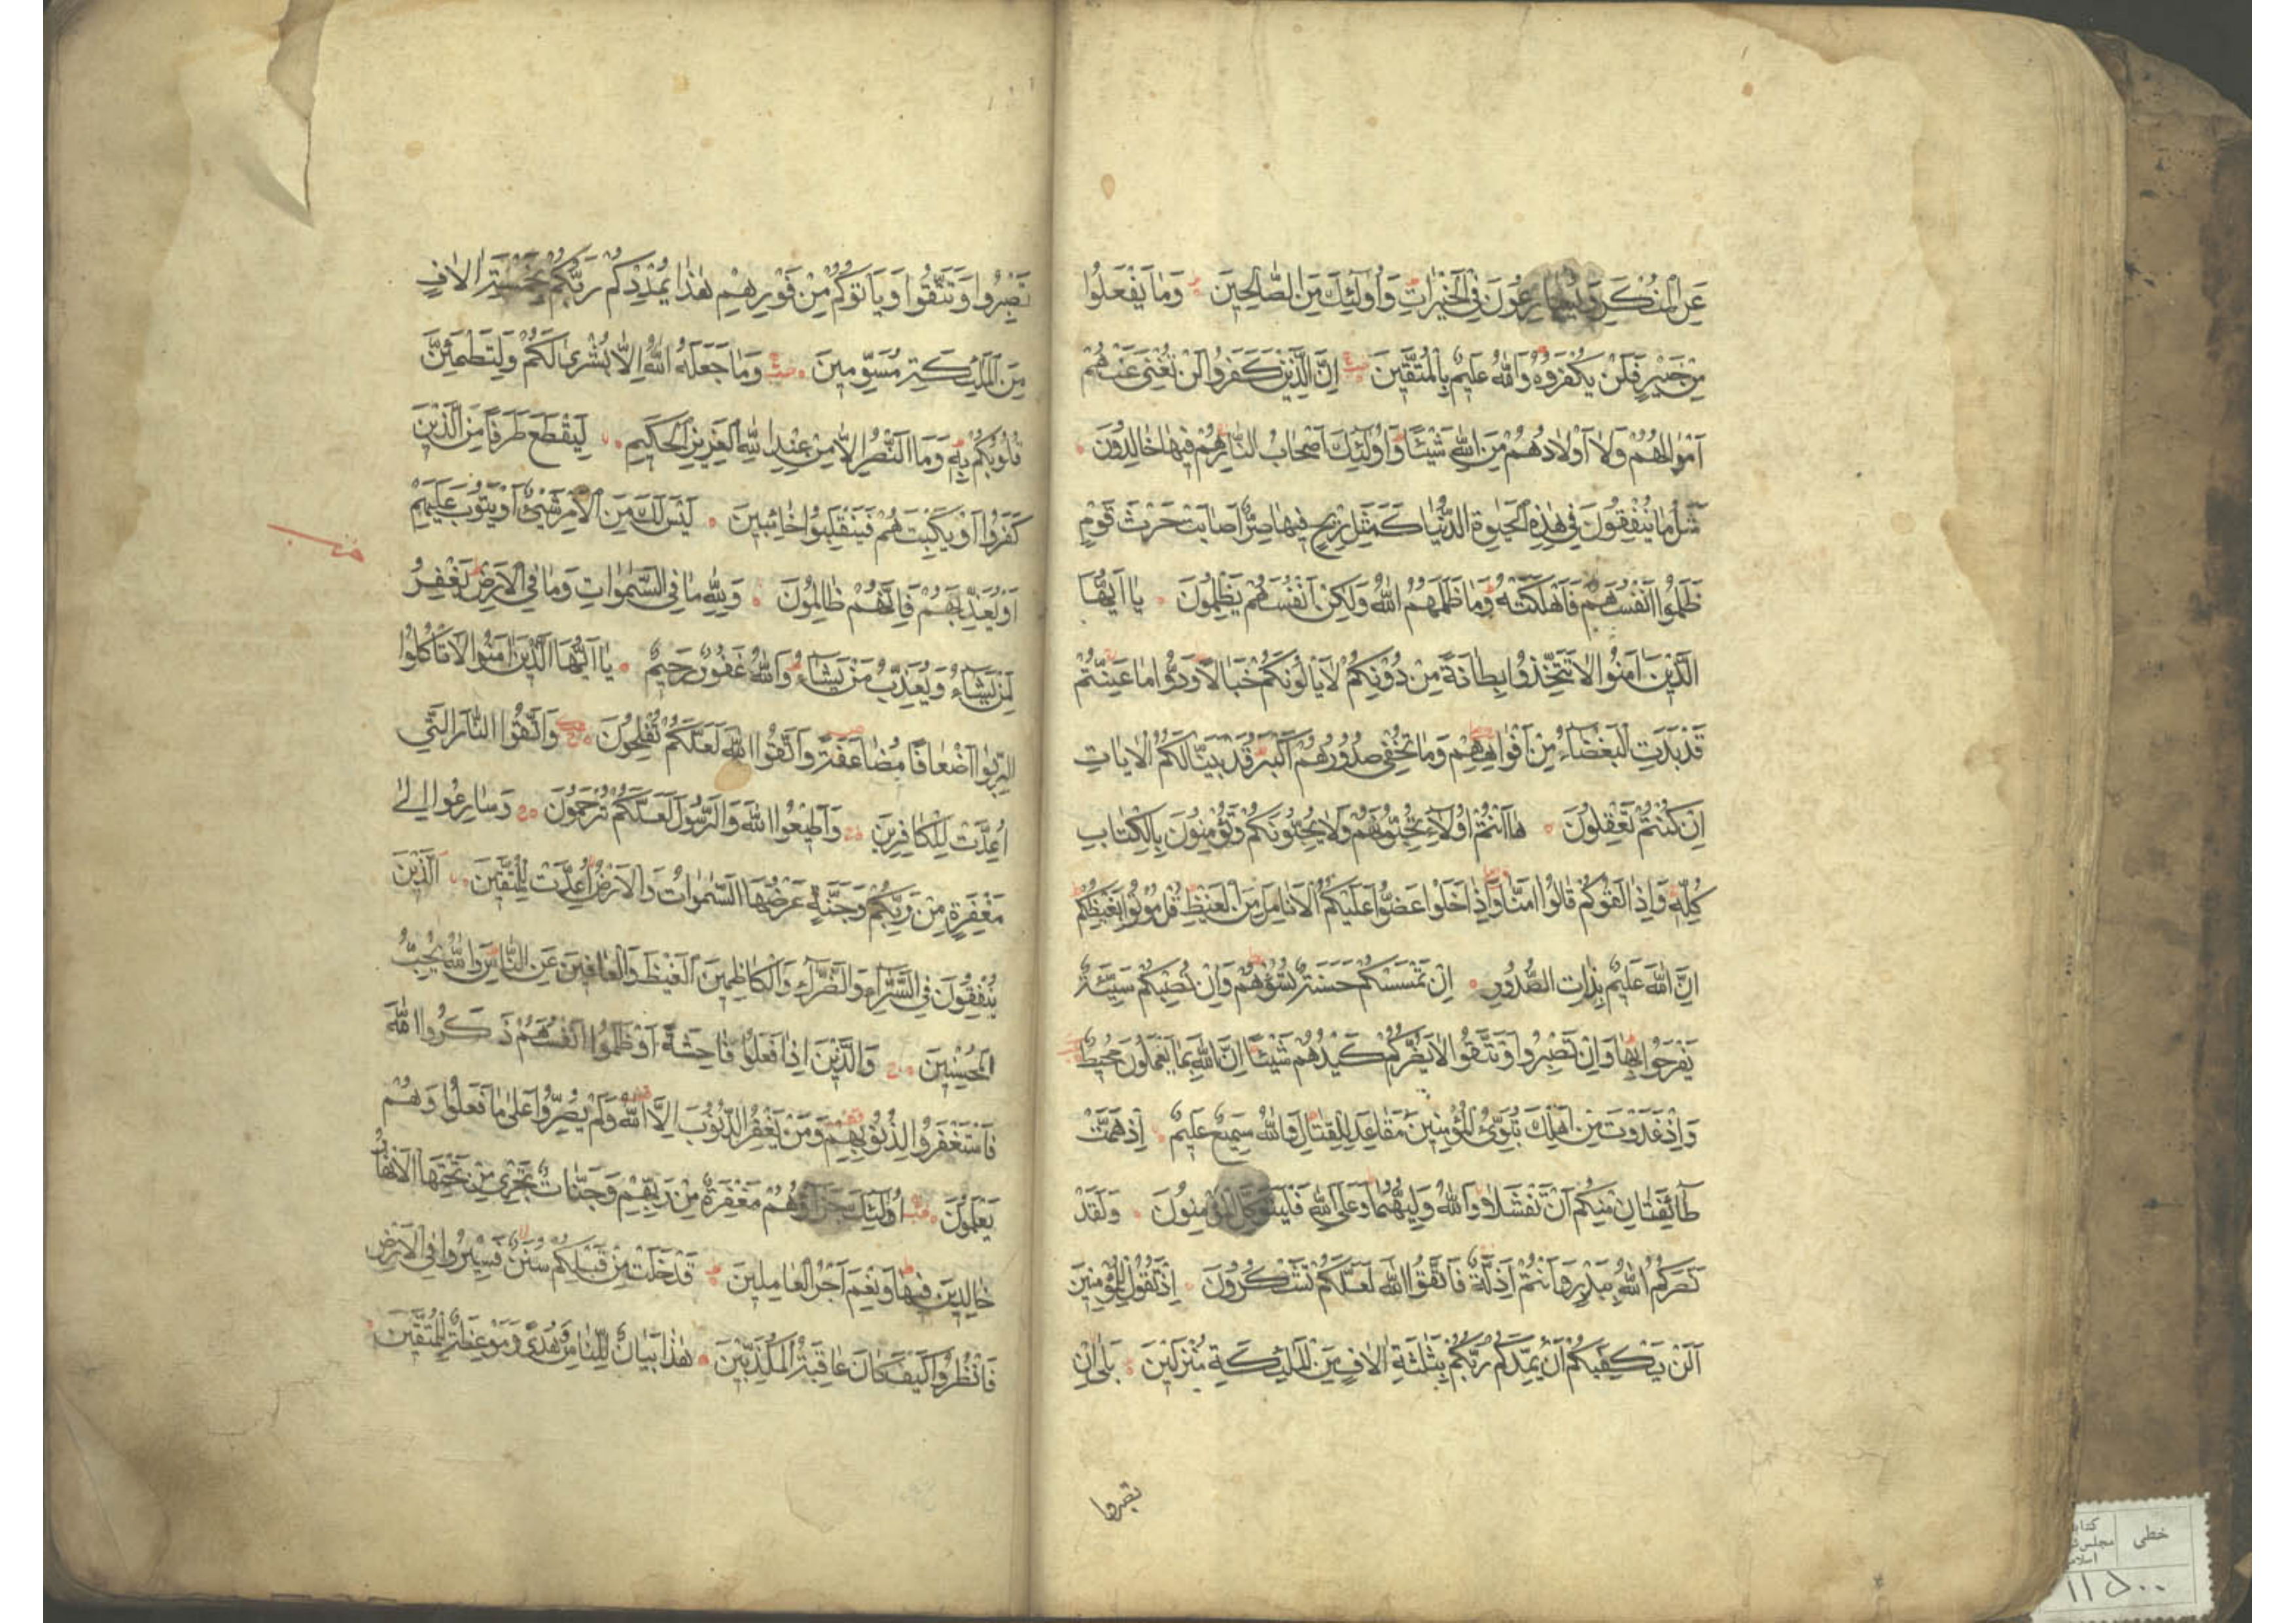 عَنِ الْمُنْكَرِ وَيُسَارِعُونَ فِي الْخَيْرَاتِ وَأُولَٰئِكَ مِنَ الصَّالِحِينَ وَمَا يَفْعَلُوا
مِنْ خَيْرٍ فَلَنْ يُكْفَرُوهُ وَاللَّهُ عَلِيمٌ بِالْمُتَّقِينَ إِنَّ الَّذِينَ كَفَرُوا لَنْ تُغْنِيَ عَنْهُمْ
أَمْوَالُهُمْ وَلَا أَوْلَادُهُمْ مِنَ اللَّهِ شَيْئًا وَأُولَٰئِكَ أَصْحَابُ النَّارِ هُمْ فِيهَا خَالِدُونَ
مَثَلُ مَا يُنْفِقُونَ فِي هَٰذِهِ الْحَيَوٰةِ الدُّنْيَا كَمَثَلِ رِيحٍ فِيهَا صِرٌّ أَصَابَتْ حَرْثَ قَوْمٍ
ظَلَمُوا أَنْفُسَهُمْ فَأَهْلَكَتْهُ وَمَا ظَلَمَهُمُ اللَّهُ وَلَٰكِنْ أَنْفُسَهُمْ يَظْلِمُونَ يَا أَيُّهَا
الَّذِينَ آمَنُوا لَا تَتَّخِذُوا بِطَانَةً مِنْ دُونِكُمْ لَا يَأْلُونَكُمْ خَبَالًا وَدُّوا مَا عَنِتُّمْ
قَدْ بَدَتِ الْبَغْضَاءُ مِنْ أَفْوَاهِهِمْ وَمَا تُخْفِي صُدُورُهُمْ أَكْبَرُ قَدْ بَيَّنَّا لَكُمُ الْآيَاتِ
إِنْ كُنْتُمْ تَعْقِلُونَ هَا أَنْتُمْ أُولَاءِ تُحِبُّونَهُمْ وَلَا يُحِبُّونَكُمْ وَتُؤْمِنُونَ بِالْكِتَابِ
كُلِّهِ وَإِذَا لَقُوكُمْ قَالُوا آمَنَّا وَإِذَا خَلَوْا عَضُّوا عَلَيْكُمُ الْأَنَامِلَ مِنَ الْغَيْظِ قُلْ مُوتُوا بِغَيْظِكُمْ
إِنَّ اللَّهَ عَلِيمٌ بِذَاتِ الصُّدُورِ إِنْ تَمْسَسْكُمْ حَسَنَةٌ تَسُؤْهُمْ وَإِنْ تُصِبْكُمْ سَيِّئَةٌ
يَفْرَحُوا بِهَا وَإِنْ تَصْبِرُوا وَتَتَّقُوا لَا يَضُرُّكُمْ كَيْدُهُمْ شَيْئًا إِنَّ اللَّهَ بِمَا يَعْمَلُونَ مُحِيطٌ
وَإِذْ غَدَوْتَ مِنْ أَهْلِكَ تُبَوِّئُ الْمُؤْمِنِينَ مَقَاعِدَ لِلْقِتَالِ وَاللَّهُ سَمِيعٌ عَلِيمٌ إِذْ هَمَّتْ
طَائِفَتَانِ مِنْكُمْ أَنْ تَفْشَلَا وَاللَّهُ وَلِيُّهُمَا وَعَلَى اللَّهِ فَلْيَتَوَكَّلِ الْمُؤْمِنُونَ وَلَقَدْ
نَصَرَكُمُ اللَّهُ بِبَدْرٍ وَأَنْتُمْ أَذِلَّةٌ فَاتَّقُوا اللَّهَ لَعَلَّكُمْ تَشْكُرُونَ إِذْ تَقُولُ لِلْمُؤْمِنِينَ
أَلَنْ يَكْفِيَكُمْ أَنْ يُمِدَّكُمْ رَبُّكُمْ بِثَلَٰثَةِ آلَافٍ مِنَ الْمَلَٰئِكَةِ مُنْزَلِينَ بَلَىٰ إِنْ
تصبروا
تَصْبِرُوا وَتَتَّقُوا وَيَأْتُوكُمْ مِنْ فَوْرِهِمْ هَٰذَا يُمْدِدْكُمْ رَبُّكُمْ بِخَمْسَةِ آلَافٍ
مِنَ الْمَلَٰئِكَةِ مُسَوِّمِينَ وَمَا جَعَلَهُ اللَّهُ إِلَّا بُشْرَىٰ لَكُمْ وَلِتَطْمَئِنَّ
قُلُوبُكُمْ بِهِ وَمَا النَّصْرُ إِلَّا مِنْ عِنْدِ اللَّهِ الْعَزِيزِ الْحَكِيمِ لِيَقْطَعَ طَرَفًا مِنَ الَّذِينَ
كَفَرُوا أَوْ يَكْبِتَهُمْ فَيَنْقَلِبُوا خَائِبِينَ لَيْسَ لَكَ مِنَ الْأَمْرِ شَيْءٌ أَوْ يَتُوبَ عَلَيْهِمْ
أَوْ يُعَذِّبَهُمْ فَإِنَّهُمْ ظَالِمُونَ وَلِلَّهِ مَا فِي السَّمٰوَاتِ وَمَا فِي الْأَرْضِ يَغْفِرُ
لِمَنْ يَشَاءُ وَيُعَذِّبُ مَنْ يَشَاءُ وَاللَّهُ غَفُورٌ رَحِيمٌ يَا أَيُّهَا الَّذِينَ آمَنُوا لَا تَأْكُلُوا
الرِّبٰوا أَضْعَافًا مُضَاعَفَةً وَاتَّقُوا اللَّهَ لَعَلَّكُمْ تُفْلِحُونَ وَاتَّقُوا النَّارَ الَّتِي
أُعِدَّتْ لِلْكَافِرِينَ وَأَطِيعُوا اللَّهَ وَالرَّسُولَ لَعَلَّكُمْ تُرْحَمُونَ وَسَارِعُوا إِلَىٰ
مَغْفِرَةٍ مِنْ رَبِّكُمْ وَجَنَّةٍ عَرْضُهَا السَّمٰوَاتُ وَالْأَرْضُ أُعِدَّتْ لِلْمُتَّقِينَ الَّذِينَ
يُنْفِقُونَ فِي السَّرَّاءِ وَالضَّرَّاءِ وَالْكَاظِمِينَ الْغَيْظَ وَالْعَافِينَ عَنِ النَّاسِ وَاللَّهُ يُحِبُّ
الْمُحْسِنِينَ وَالَّذِينَ إِذَا فَعَلُوا فَاحِشَةً أَوْ ظَلَمُوا أَنْفُسَهُمْ ذَكَرُوا اللَّهَ
فَاسْتَغْفَرُوا لِذُنُوبِهِمْ وَمَنْ يَغْفِرُ الذُّنُوبَ إِلَّا اللَّهُ وَلَمْ يُصِرُّوا عَلَىٰ مَا فَعَلُوا وَهُمْ
يَعْلَمُونَ أُولَٰئِكَ جَزَاؤُهُمْ مَغْفِرَةٌ مِنْ رَبِّهِمْ وَجَنَّاتٌ تَجْرِي مِنْ تَحْتِهَا الْأَنْهَارُ
خَالِدِينَ فِيهَا وَنِعْمَ أَجْرُ الْعَامِلِينَ قَدْ خَلَتْ مِنْ قَبْلِكُمْ سُنَنٌ فَسِيرُوا فِي الْأَرْضِ
فَانْظُرُوا كَيْفَ كَانَ عَاقِبَةُ الْمُكَذِّبِينَ هَٰذَا بَيَانٌ لِلنَّاسِ وَهُدًى وَمَوْعِظَةٌ لِلْمُتَّقِينَ
خطی
۱۱۵۰۰